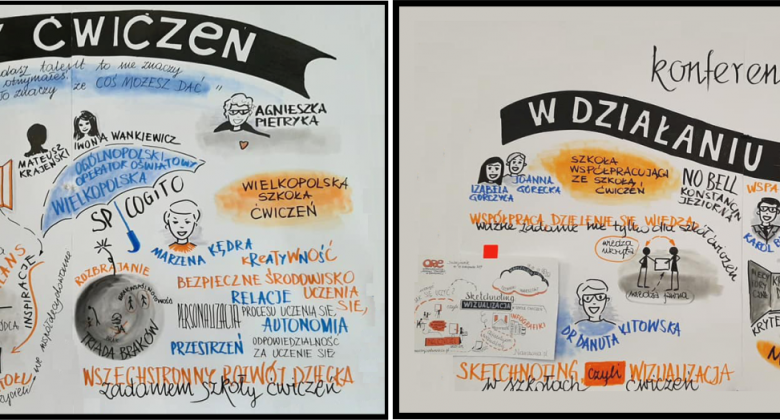 ĆWICZEŃ
talent to nie znaczy
otrzymałeś
to znaczy że COŚ MOŻESZ DAĆ"
MATEUSZ
KRAJEŃSKI
IWONA WANKIEWICZ
AGNIESZKA
PIETRYKA
OGÓLNOPOLSKI
OPERATOR OŚWIATOWY
WIELKOPOLSKA
SP COGITO
WIELKOPOLSKA
SZKOŁA
ĆWICZEŃ
MARZENA KĘDRA
INSPIRACJE
ROZBRAJANIE
TRIADA BRAKÓW
KREATYWNOŚĆ
BEZPIECZNE ŚRODOWISKO
UCZENIA
SIĘ,
RELACJE
PERSONALIZACJA
PROCESU UCZENIA SIĘ,
AUTONOMIA
PRZESTRZEŃ
ODPOWIEDZIALNOŚĆ
ZA UCZENIE SIĘ
WSZECHSTRONNY ROZWÓJ DZIECKA
zadaniem szkoły ćwiczeń
konferen
W DZIAŁANIU
IZABELA
GORZYCA
JOANNA
GÓRECKA
SZKOŁA
WSPÓŁPRACUJĄCA
ZE SZKOŁĄ
ĆWICZEŃ
NO BELL
KONSTANCIN
JEZIORNA
WSPA
KAROL
WSPÓŁPRACA DZIELENIE SIĘ WIEDZĄ
ważne zadanie nie tylko dla szkół ćwiczeń
wiedza
ukryta
wiedza jawna
ORE
Sketchnoting
WIZUALIZACJA
DR DANUTA KITOWSKA
KRYTE
SKETCHNOTING czyli WIZUALIZACJA
w szkołach ćwiczeń